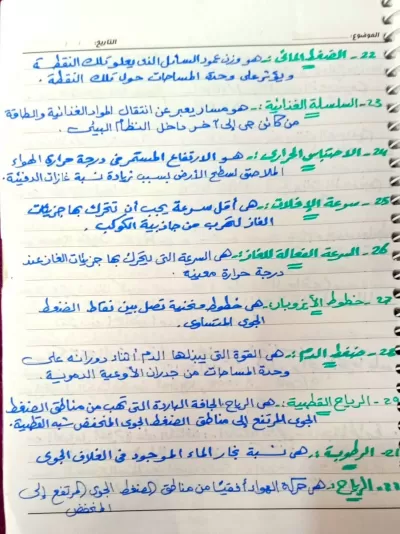 الموضوع: التاريخ: / /
22- الضغط المائي :- هو وزن عمود السائل الذي يعلو تلك النقطة
ويؤثر على وحدة المساحات حول تلك النقطة.
23- السلسلة الغذائية :- هو مسار يعبر عن انتقال المواد الغذائية والطاقة
من كائن حي إلى آخر داخل النظام البيئي.
24- الاحتباس الحراري :- هو الارتفاع المستمر في درجة حرارة الهواء
الملاصق لسطح الأرض بسبب زيادة نسبة غازات الدفيئة.
25- سرعة الإفلات :- هي أقل سرعة يجب أن تتحرك بها جزيئات
الغاز للهرب من جاذبية الكوكب.
26- السرعة الفعالة للغاز :- هي السرعة التي تتحرك بها جزيئات الغاز عند
درجة حرارة معينة.
27- خطوط الأيزوبار :- هي خطوط منحنية تصل بين نقاط الضغط
الجوي المتساوي.
28- ضغط الدم :- هي القوة التي يبذلها الدم أثناء دورانه على
وحدة المساحات من جدران الأوعية الدموية.
29- الرياح القطبية :- هي الرياح الجافة الباردة التي تهب من مناطق الضغط
الجوي المرتفع إلى مناطق الضغط الجوي المنخفض شبه القطبية.
الرطوبة :- هي نسبة بخار الماء الموجود في الغلاف الجوي
الرياح :- هي حركة الهواء أفقيا من مناطق الضغط الجوي المرتفع إلى
المنخفض